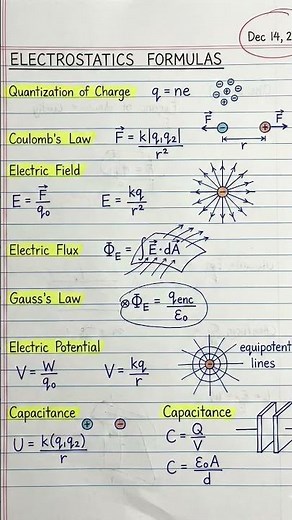 Dec 14, 2
ELECTROSTATICS FORMULAS
Quantization of Charge q = ne
Coulomb's Law F⃗ = k|q₁q₂| / r²
F⃗ - + F⃗
r
Electric Field
E = F⃗ / q₀ E = kq / r²
Electric Flux Φ_E = ∫ E⃗·dA⃗
Gauss's Law ⊗Φ_E = q_enc / ε₀
Electric Potential
V = W / q₀ V = kq / r
equipotent
lines
Capacitance + -
U = k(q₁q₂) / r
Capacitance
C = Q / V
C = ε₀A / d